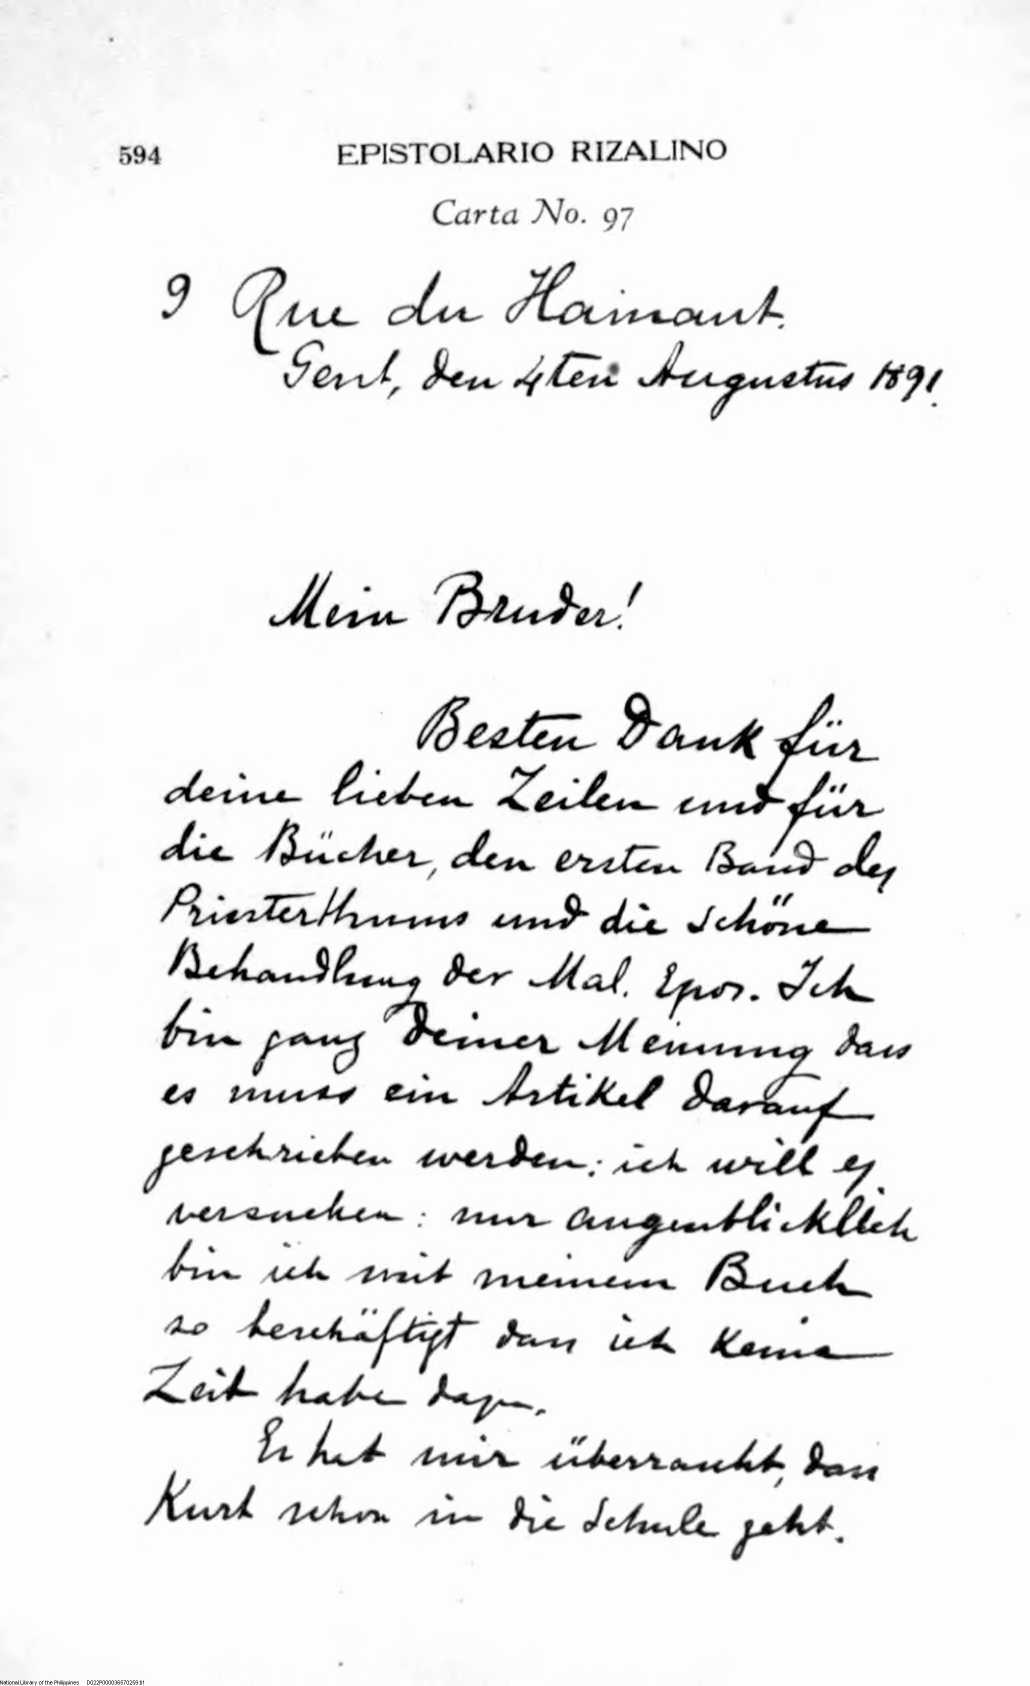 594 EPISTOLARIO RIZALINO
Carta No. 97
9 Rue du Hainaut.
Gent, den 4ten Augustus 1891.
Mein Bruder!
Besten Dank für
deine lieben Zeilen und für
die Bücher, den ersten Band des
Priesterthums und die schöne
Behandlung der Mal. Epos. Ich
bin ganz deiner Meinung dass
es muss ein Artikel darauf
geschrieben werden; ich will es
versuchen: nur augenblicklich
bin ich mit meinem Buch
so beschäftigt dass ich keine
Zeit habe dazu.
Es hat mir überrascht, dass
Kurt schon in die Schule geht.
National Library of the Philippines